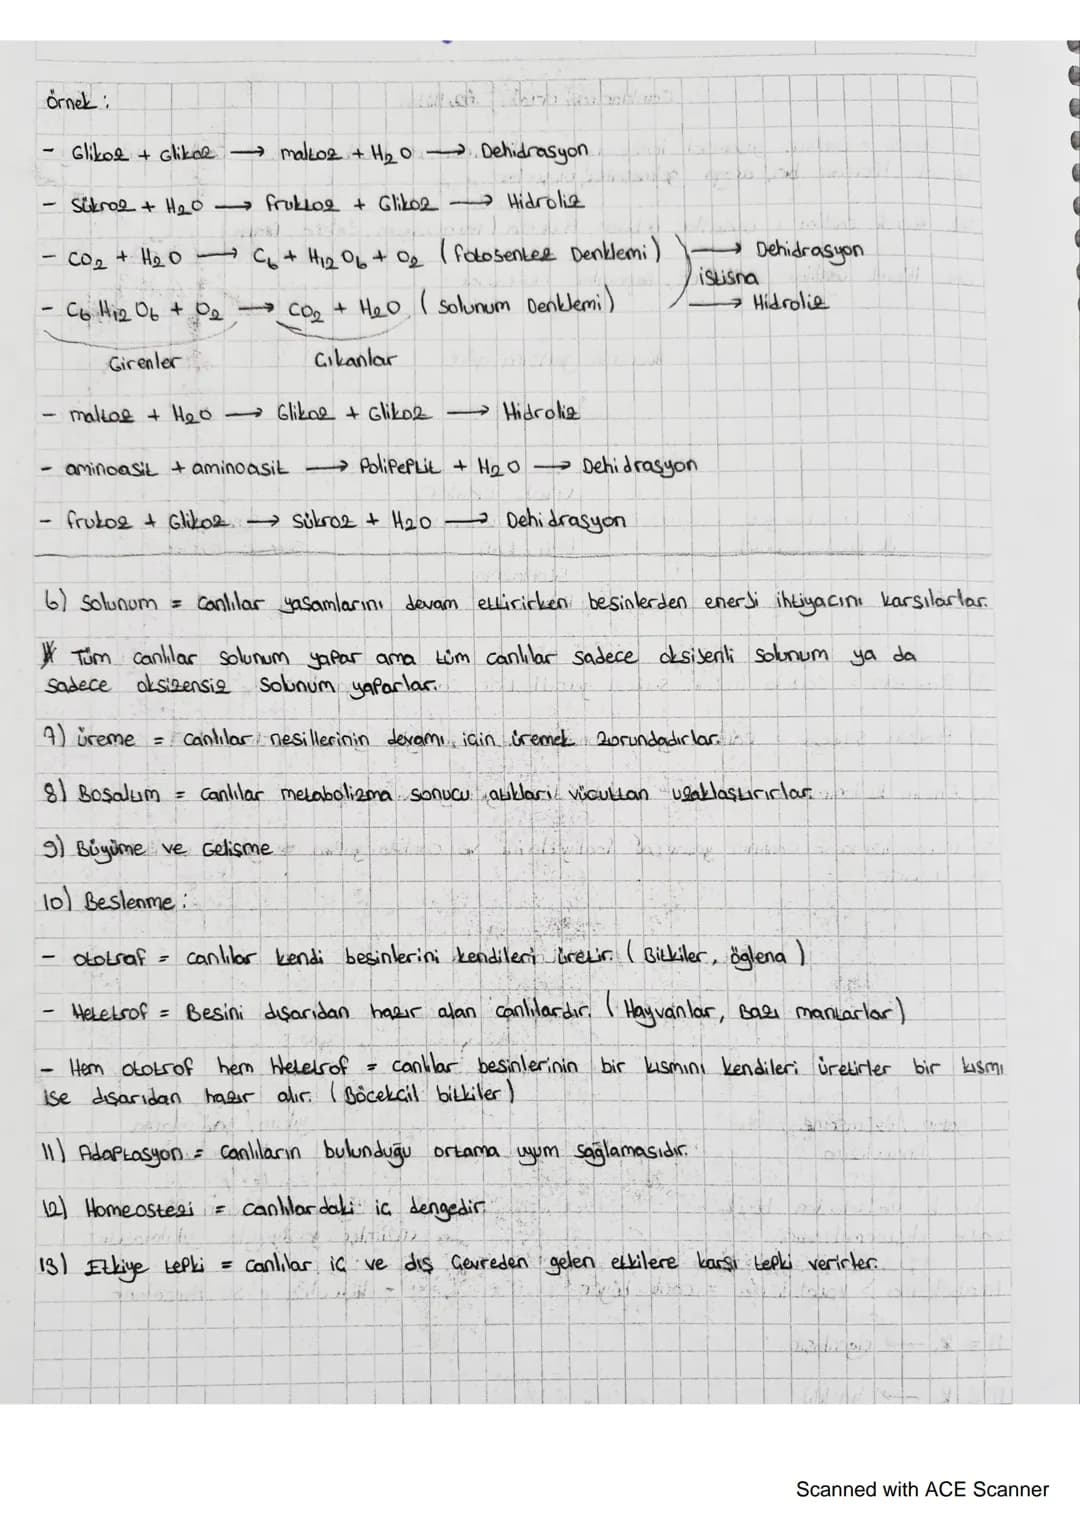 örnek :
- Glikoz + Glikoz → maltoz + H2O → Dehidrasyon
- Sükroz + H2O → fruktoz + Glikoz → Hidroliz
- CO2 + H2O → C6 + H12 O6 + O2 ( fotosentez Denklemi ) → Dehidrasyon
istisna
- C6 H12 O6 + O2 → CO2 + H2O ( Solunum Denklemi ) → Hidroliz
Girenler Cıkanlar
- maltoz + H2O → Glikoz + Glikoz → Hidroliz
- aminoasit + aminoasit → PoliPePtit + H2O → Dehidrasyon
- frukoz + Glikoz → Sükroz + H2O → Dehidrasyon
6) Solunum = canlılar yaşamlarını devam ettirirken besinlerden enerji ihtiyacını karşılarlar.
* Tüm canlılar solunum yapar ama tüm canlılar sadece oksijenli solunum ya da
sadece oksizensiz Solunum yaparlar.
7) üreme = canlılar nesillerinin devamı için üremek zorundadırlar.
8) Boşaltım = canlılar metabolizma sonucu atıkları vücuttan uzaklaştırırlar.
9) Büyüme ve Gelişme
10) Beslenme :
- ototraf = canlılar kendi besinlerini kendileri üretir. ( Bitkiler, öglena )
- Hetetrof = Besini dışarıdan hazır alan canlılardır. ( Hayvanlar, Bazı mantarlar )
- Hem ototrof hem Hetetrof = canlılar besinlerinin bir kısmını kendileri üretirler bir kısmı
ise dışarıdan hazır alır. ( Böcekcil bitkiler )
11) Adaptasyon = Canlıların bulunduğu ortama uyum sağlamasıdır.
12) Homeostezi = canlılardaki iç dengedir.
13) Etkiye tepki = canlılar iç ve dış Çevreden gelen etkilere karşı tepki verirler.
Scanned with ACE Scanner